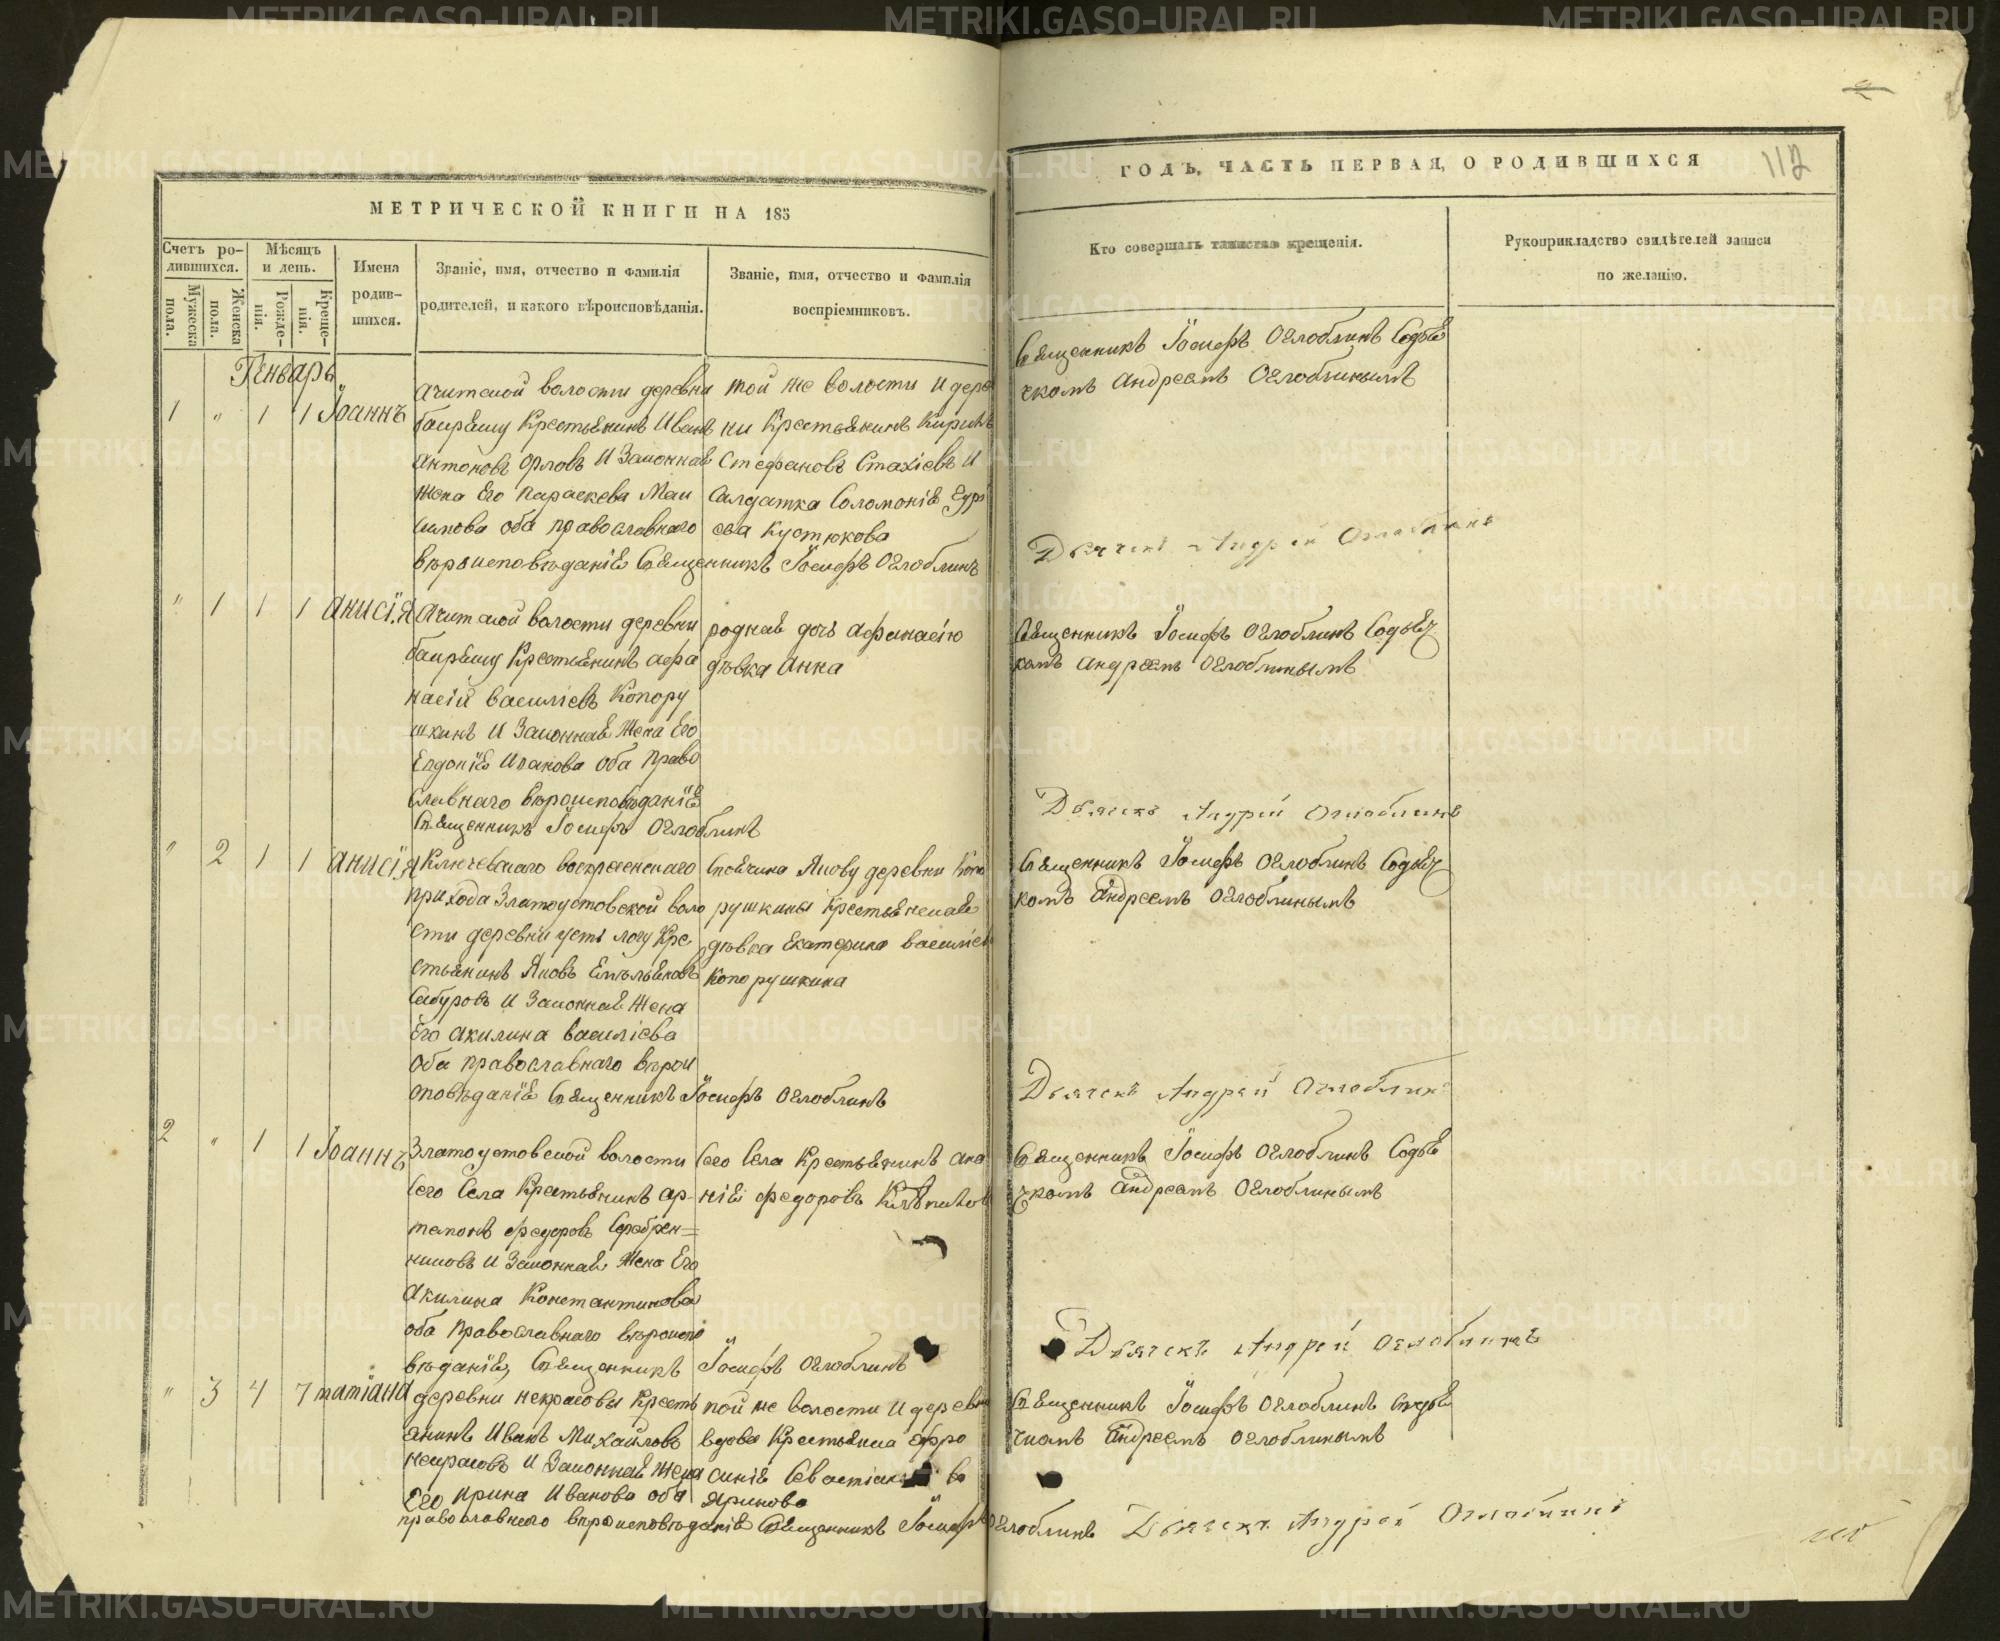 МЕТРИЧЕСКОЙ КНИГИ НА 185
ГОДЪ, ЧАСТЬ ПЕРВАЯ, О РОДИВШИХСЯ
112
Счетъ родившихся.
Мужеска пола.
Женска пола.
Мѣсяцъ и день.
Рожденія.
Крещенія.
Имена родившихся.
Званіе, имя, отчество и фамилія
родителей, и какого вѣроисповѣданія.
Званіе, имя, отчество и фамилія
воспріемниковъ.
Кто совершалъ таинство крещенія.
Рукоприкладство свидѣтелей записи
по желанію.
Генварь
1 " 1 1 Іоаннъ
Ачитской волости деревни
крестьянинъ Иванъ
Антоновъ Орловъ и законная
жена его Параскева Мак
симова оба православнаго
вѣроисповѣданія Священникъ Іосифъ Оглоблинъ
той же волости и дерев
ни крестьянинъ Кирилъ
Стефановъ Стахіевъ и
салдатка Соломонія
Кустюкова
Священникъ Іосифъ Оглоблинъ Содья
чкомъ Андреемъ Оглоблинымъ
Дьячекъ Андрей Оглоблинъ
" 1 1 1 Анисія
Ачитской волости деревни
крестьянинъ Афа
насій Василіевъ Копору
шкинъ и законная жена его
Евдокія Иванова оба право
славнаго вѣроисповѣданія
Священникъ Іосифъ Оглоблинъ
родная дочь Афанасію
дѣвка Анна
Священникъ Іосифъ Оглоблинъ Содьяч
комъ Андреемъ Оглоблинымъ
Дьячекъ Андрей Оглоблинъ
" 2 1 1 Анисія
Ключевскаго Воскресенскаго
прихода Златоустовской воло
сти деревни усть логу кре
стьянинъ Яковъ Емельяновъ
Сабуровъ и законная жена
его Акилина Василіева
оба православнаго вѣрои
споведанія Священникъ Іосифъ Оглоблинъ
Своячина Якову деревни Копо
рушкины крестьянская
дѣвка Екатерина Василіев
Копорушкина
Священникъ Іосифъ Оглоблинъ Содьяч
комъ Андреемъ Оглоблинымъ
Дьячекъ Андрей Оглоблинъ
2 " 1 1 Іоаннъ
Златоустовской волости
сего села крестьянинъ Ар
тамонъ Федоровъ Серебрен=
никовъ и законная жена его
Акилина Константинова
оба православнаго вѣроиспо
вѣданія, Священникъ Іосифъ Оглоблинъ
сего села крестьянинъ Ана
нія Федоровъ
Священникъ Іосифъ Оглоблинъ Содья
чкомъ Андреемъ Оглоблинымъ
Дьячекъ Андрей Оглоблинъ
" 3 4 7 татіана
деревни некрасовы кресть
янинъ Иванъ Михайловъ
некрасовъ и законная жена
его Ирина Иванова оба
православнаго вѣроисповѣданія Священникъ Іосифъ Оглоблинъ
той же волости и деревни
вдова крестьянка Ефро
синія
Священникъ Іосифъ Оглоблинъ Содья
чкомъ Андреемъ Оглоблинымъ
Дьячекъ Андрей Оглоблинъ
METRIKI.GASO-URAL.RU